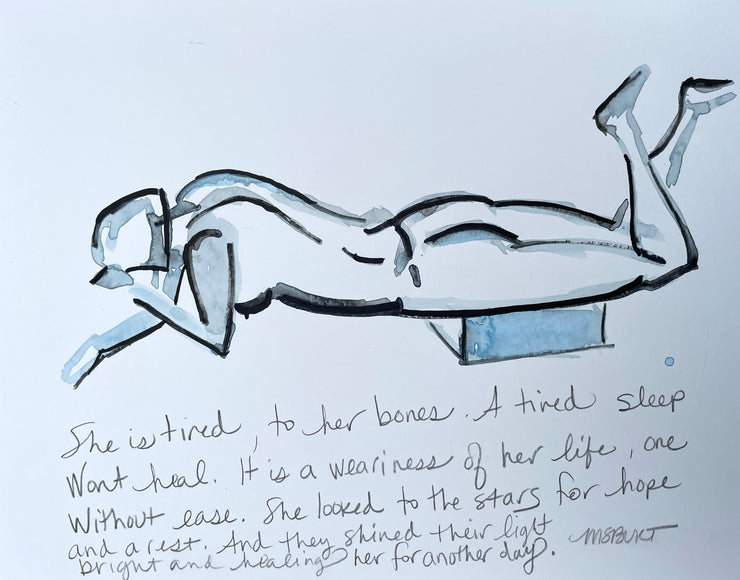 She is tired, to her bones. A tired sleep
Wont heal. It is a weariness of her life, one
Without ease. She looked to the stars for hope
and a rest. And they shined their light
bright and healing her for another day. MSBURT